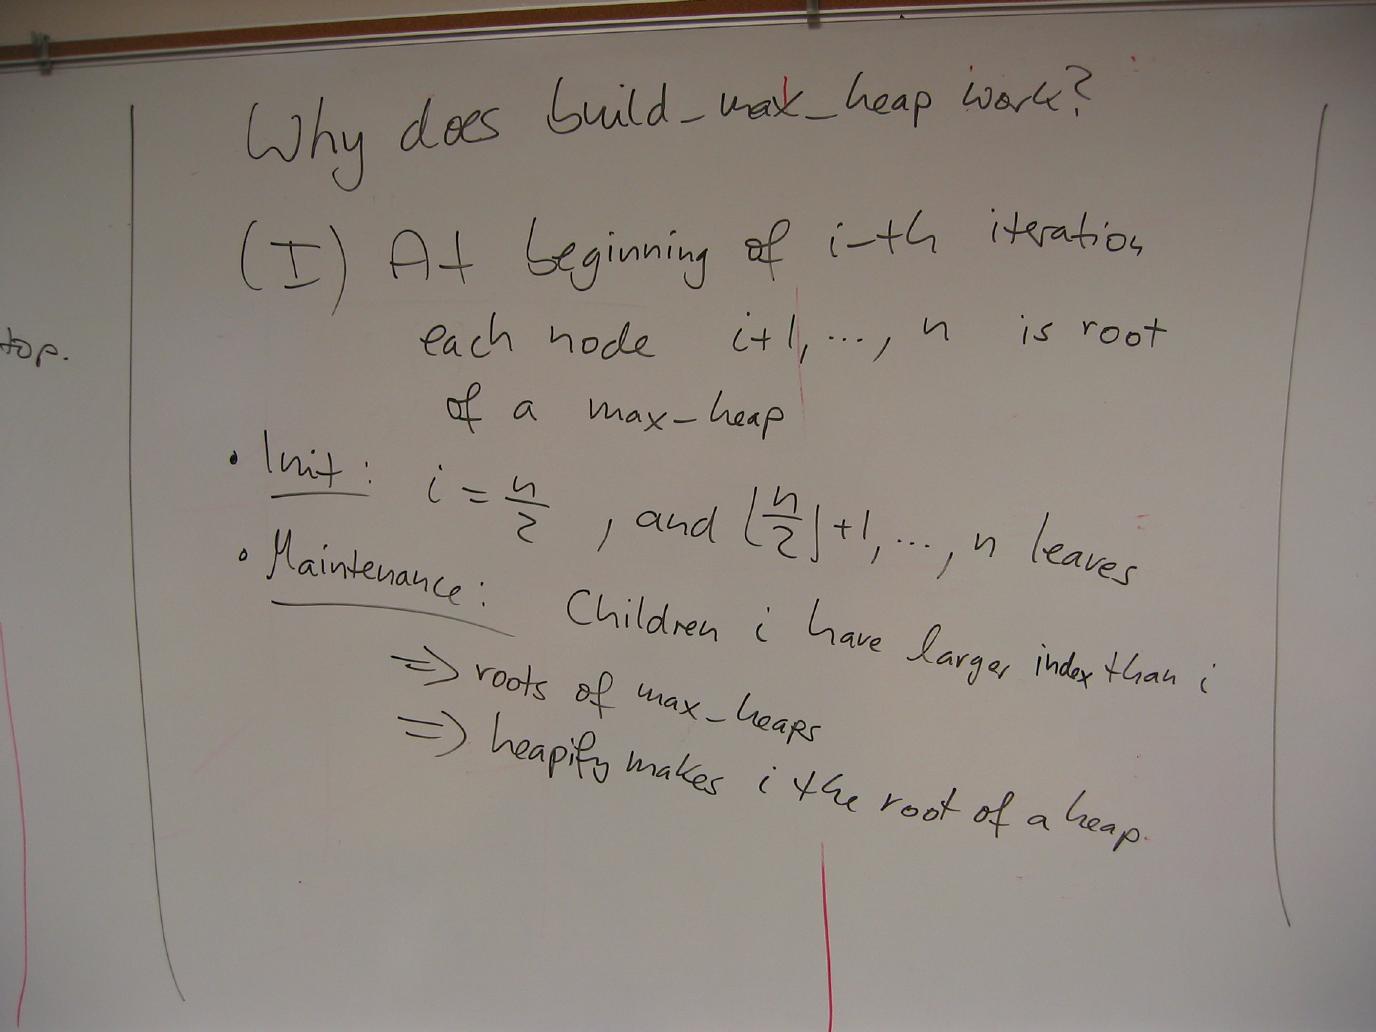 Why does build_max_heap work?
(I) At beginning of i-th iteration
each node i+1, ..., n is root
of a max-heap
top.
• Init: i = n/2, and ⌊n/2⌋+1, ..., n leaves
• Maintenance: Children i have larger index than i
⇒ roots of max_heaps
⇒ heapify makes i the root of a heap.